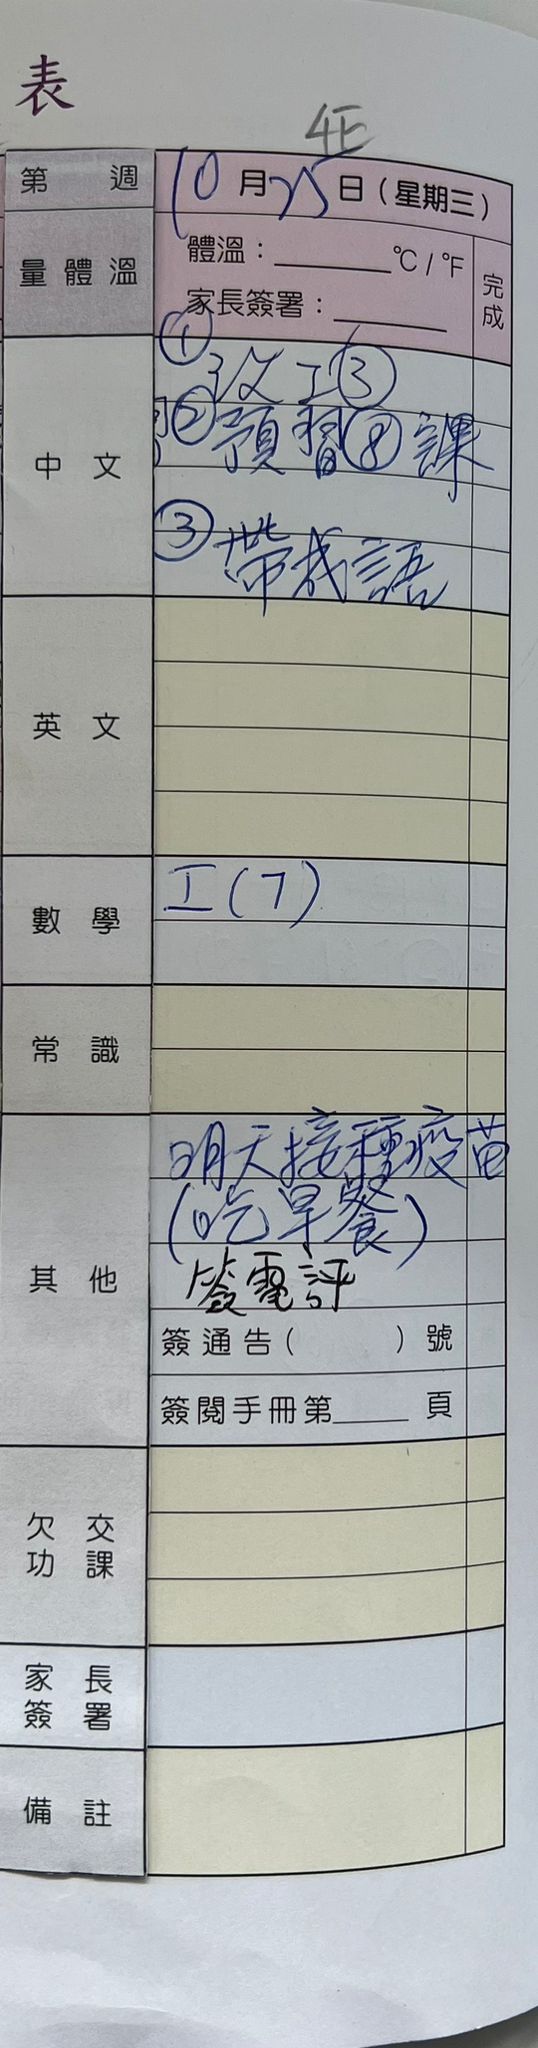 表
4E
第 週 10月25日(星期三)
量體溫 體溫：______℃/℉ 完成
家長簽署：______
中文
① 改工③
② 預習⑧課
③ 帶成語
英文
數學 工(7)
常識
其他
明天接種疫苗
(吃早餐)
簽電評
簽通告( )號
簽閱手冊第____頁
欠交功課
家長簽署
備註